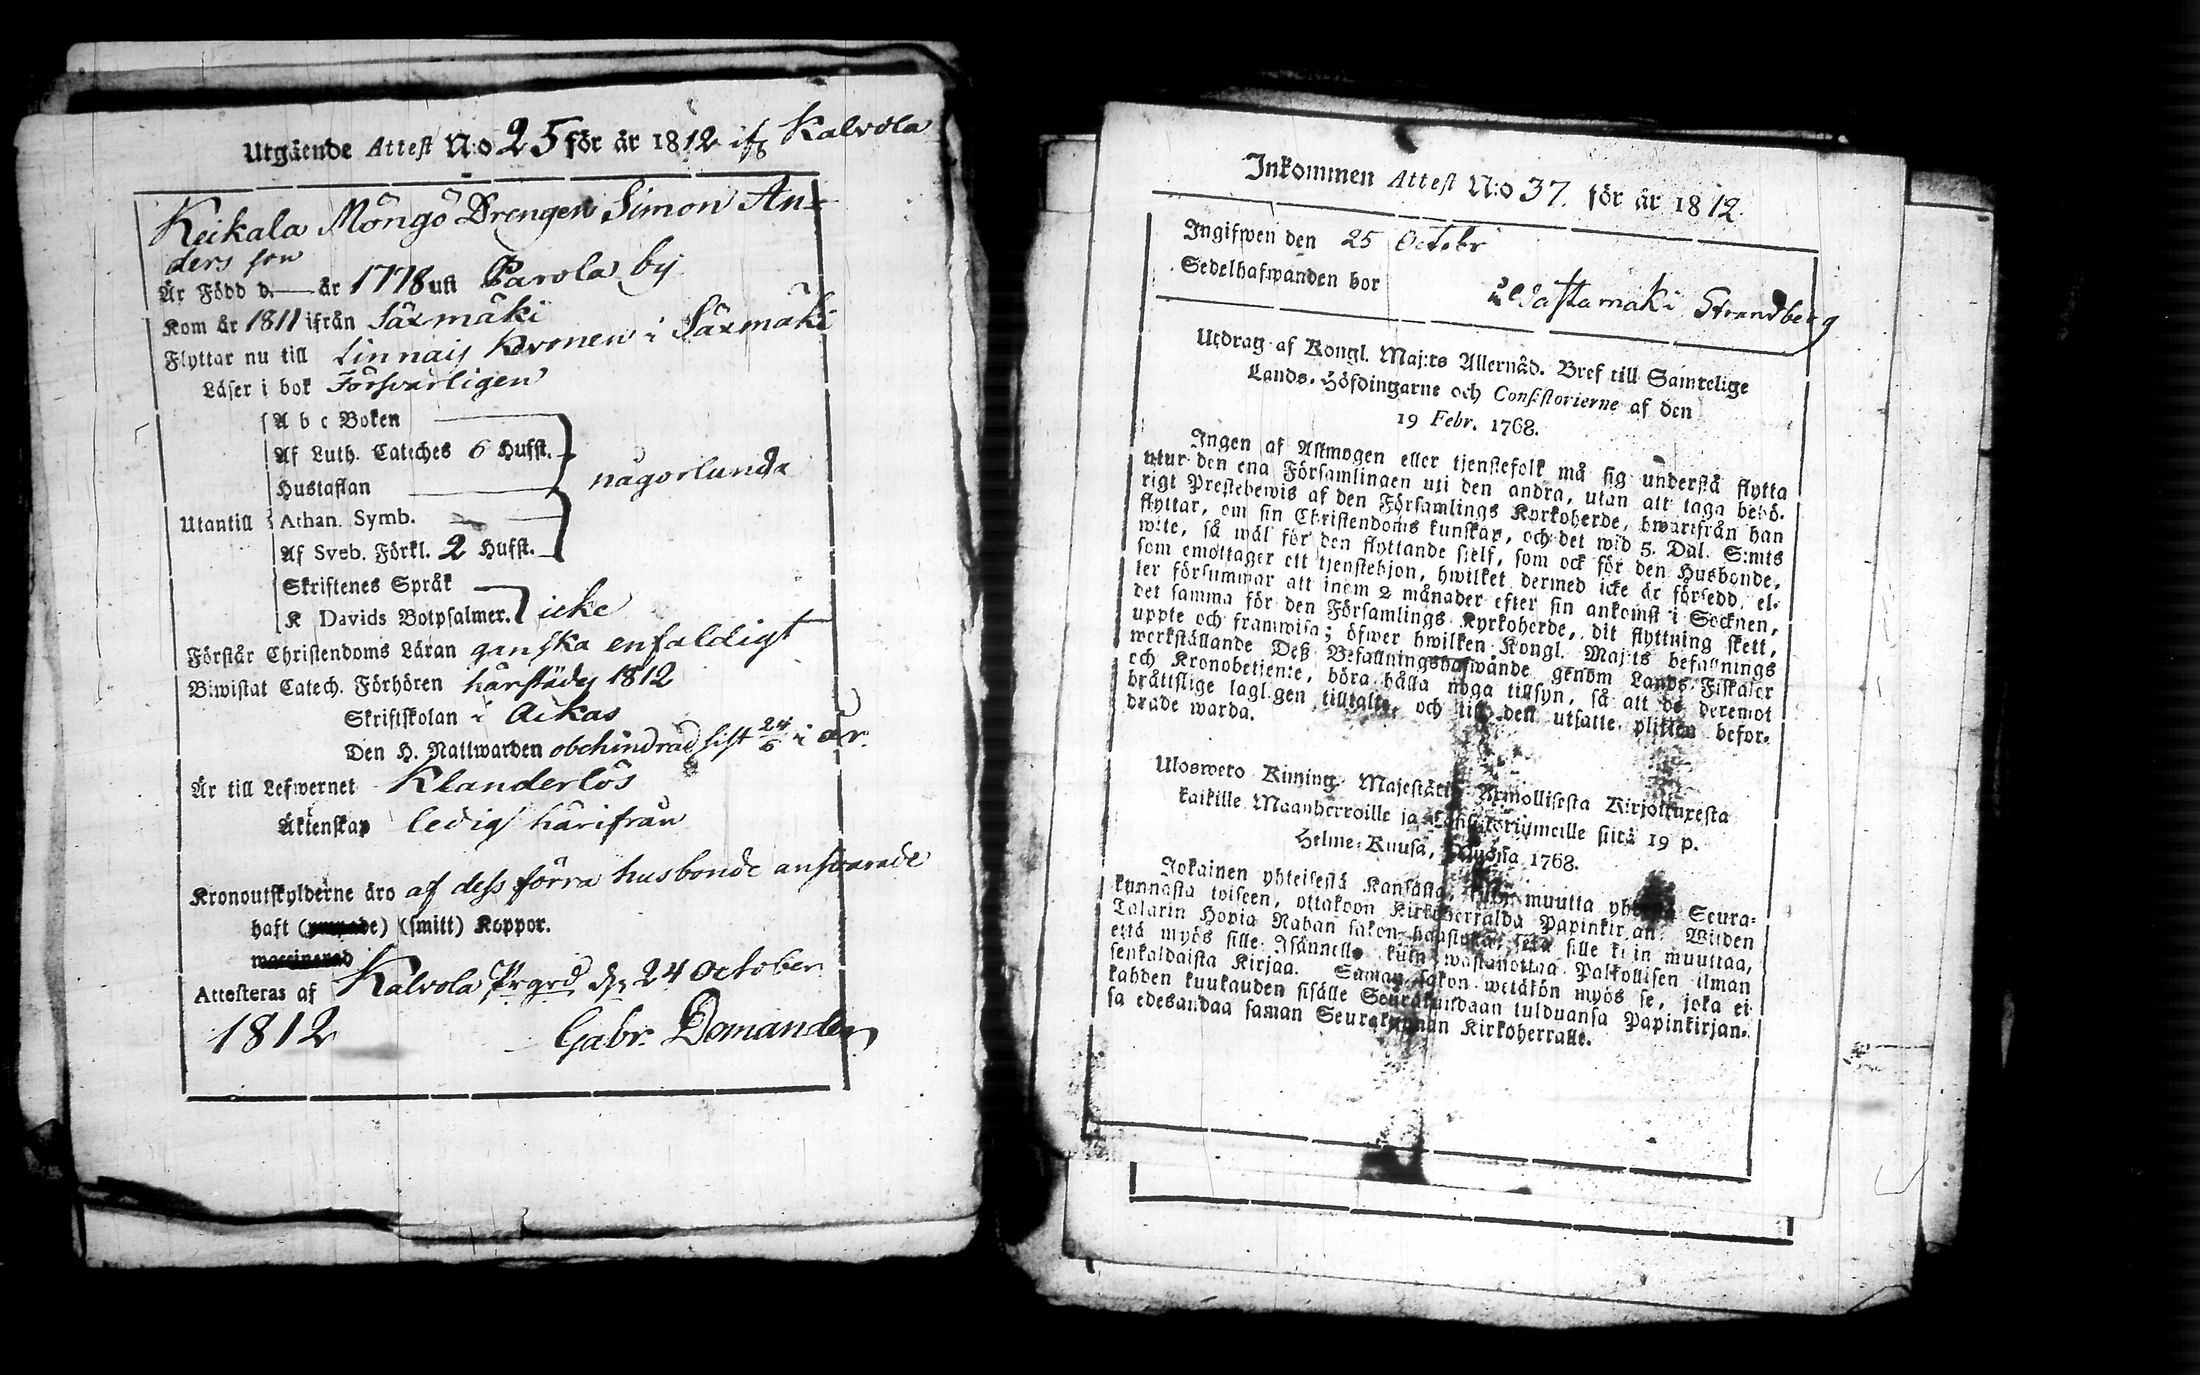 Utgående Attest N:o 25 för år 1812 ifr Kalvola
Keikala Möngö Drengen Simon An=
ders son
Är Född d. — år 1778 uti Parola by
Kom år 1811 ifrån Säxmäki
Flyttar nu till Linnais Kronen i Säxmäki
Läser i bok Försvarligen
A b c Boken
Af Luth. Cateches 6 Hufst.
Hustaflan
någorlunda
Utantill Athan. Symb.
Af Sveb. Förkl. 2 Hufst.
Skriftenes Språk
K Davids Botpsalmer. icke
Förstår Christendoms Läran ganska enfaldigt
Biwistat Catech. Förhören härstädes 1812
Skriftskolan i Aikas
Den H. Nattwarden obehindrad sist 24/6 i år.
Är till Lefwernet Klanderlös
Äktenskap ledig härifrån
Kronoutskylderne äro af dess förra husbonde ansvarade
haft (smitt) Koppor.
Attesteras af Kalvola Prgrd d. 24 October
1812 Gabr. Domander
Inkommen Attest N:o 37. för år 1812
Ingifwen den 25 Octobr
Sedelhafwanden bor
Wastamäki Strandberg
Utdrag af Kongl. Maj:ts Allernåd. Bref till Samtelige
Lands-Höfdingarne och Consistorierne af den
19 Febr. 1768.
Ingen af Allmogen eller tjenstefolk må sig understå flytta
utur den ena Församlingen uti den andra, utan att taga behö-
rigt Prestebewis af den Församlings Kyrkoherde, hwarifrån han
flyttar, om sin Christendoms kunskap, och det wid 5. Dal. S:mts
wite, så wäl för den flyttande sjelf, som ock för den Husbonde,
som emottager ett tjenstehjon, hwilket dermed icke är försedd, el-
ler försummar att inom 2 månader efter sin ankomst i Socknen,
det samma för den Församlings Kyrkoherde, dit flyttning skett,
uppte och framwisa; öfwer hwilken Kongl. Maj:ts befallnings
werkställande Deß Befallningshafwande genom Lands-Fiskaler
och Kronobetjente, böra hålla noga tillsyn, så att de deremot
bråttslige lagligen tilltalte, och till den utsatte plikten befor-
drade warda.
Ulosweto Kuning. Majestätin Armollisesta Kirjoituxesta
kaikille Maanherroille ja Consistoriumeille siitä 19 p.
Helme-Kuusa, Wuonna 1768.
Jokainen yhteisestä Kansasta, muutta yhdestä Seura-
kunnasta toiseen, ottakoon Kirkkoherralda Papinkirjan. Wiiden
Talarin Hopia Rahan sakon sille kuin muuttaa,
että myös sille Isännelle kuin wastanottaa Palkollisen ilman
senkaldaista Kirjaa. Saman sakon wetäkön myös se, joka ei
kahden kuukauden sisälle Seurakundaan tulduansa Papinkirjan-
sa edesandaa saman Seurakunnan Kirkoherralle.